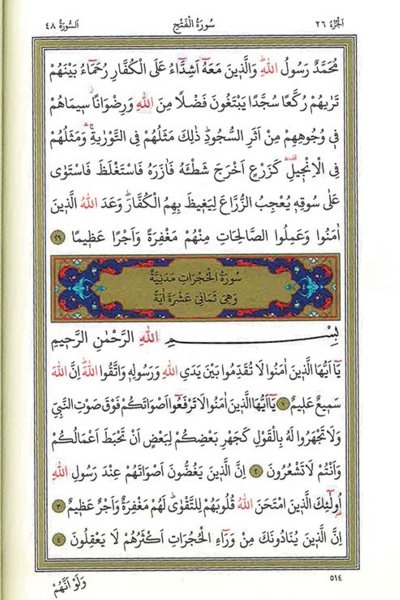 اَلْجُزْءُ ٢٦ سُورَةُ الْفَتْحِ اَلسُّورَةُ ٤٨
مُحَمَّدٌ رَسُولُ اللّٰهِ وَالَّذ۪ينَ مَعَهُٓ اَشِدَّٓاءُ عَلَى الْكُفَّارِ رُحَمَٓاءُ بَيْنَهُمْ
تَرٰيهُمْ رُكَّعًا سُجَّدًا يَبْتَغُونَ فَضْلًا مِنَ اللّٰهِ وَرِضْوَانًاۘ س۪يمَاهُمْ
ف۪ي وُجُوهِهِمْ مِنْ اَثَرِ السُّجُودِۜ ذٰلِكَ مَثَلُهُمْ فِي التَّوْرٰيةِۚ وَمَثَلُهُمْ
فِي الْاِنْج۪يلِ۠ كَزَرْعٍ اَخْرَجَ شَطْـَٔهُ فَاٰزَرَهُ فَاسْتَغْلَظَ فَاسْتَوٰى
عَلٰى سُوقِه۪ يُعْجِبُ الزُّرَّاعَ لِيَغ۪يظَ بِهِمُ الْكُفَّارَۜ وَعَدَ اللّٰهُ الَّذ۪ينَ
اٰمَنُوا وَعَمِلُوا الصَّالِحَاتِ مِنْهُمْ مَغْفِرَةً وَاَجْرًا عَظ۪يمًا ٢٩
سُورَةُ الْحُجُرَاتِ مَدَنِيَّةٌ
وَهِيَ ثَمَانِيَ عَشْرَةَ اٰيَةً
بِسْمِ اللّٰهِ الرَّحْمٰنِ الرَّح۪يمِ
يَٓا اَيُّهَا الَّذ۪ينَ اٰمَنُوا لَا تُقَدِّمُوا بَيْنَ يَدَيِ اللّٰهِ وَرَسُولِه۪ وَاتَّقُوا اللّٰهَۜ اِنَّ اللّٰهَ
سَم۪يعٌ عَل۪يمٌ ١ يَٓا اَيُّهَا الَّذ۪ينَ اٰمَنُوا لَا تَرْفَعُٓوا اَصْوَاتَكُمْ فَوْقَ صَوْتِ النَّبِيِّ
وَلَا تَجْهَرُوا لَهُ بِالْقَوْلِ كَجَهْرِ بَعْضِكُمْ لِبَعْضٍ اَنْ تَحْبَطَ اَعْمَالُكُمْ
وَاَنْتُمْ لَا تَشْعُرُونَ ٢ اِنَّ الَّذ۪ينَ يَغُضُّونَ اَصْوَاتَهُمْ عِنْدَ رَسُولِ اللّٰهِ
اُو۬لٰٓئِكَ الَّذ۪ينَ امْتَحَنَ اللّٰهُ قُلُوبَهُمْ لِلتَّقْوٰىۜ لَهُمْ مَغْفِرَةٌ وَاَجْرٌ عَظ۪يمٌ ٣
اِنَّ الَّذ۪ينَ يُنَادُونَكَ مِنْ وَرَٓاءِ الْحُجُرَاتِ اَكْثَرُهُمْ لَا يَعْقِلُونَ ٤
٥١٤
وَلَوْ اَنَّهُمْ